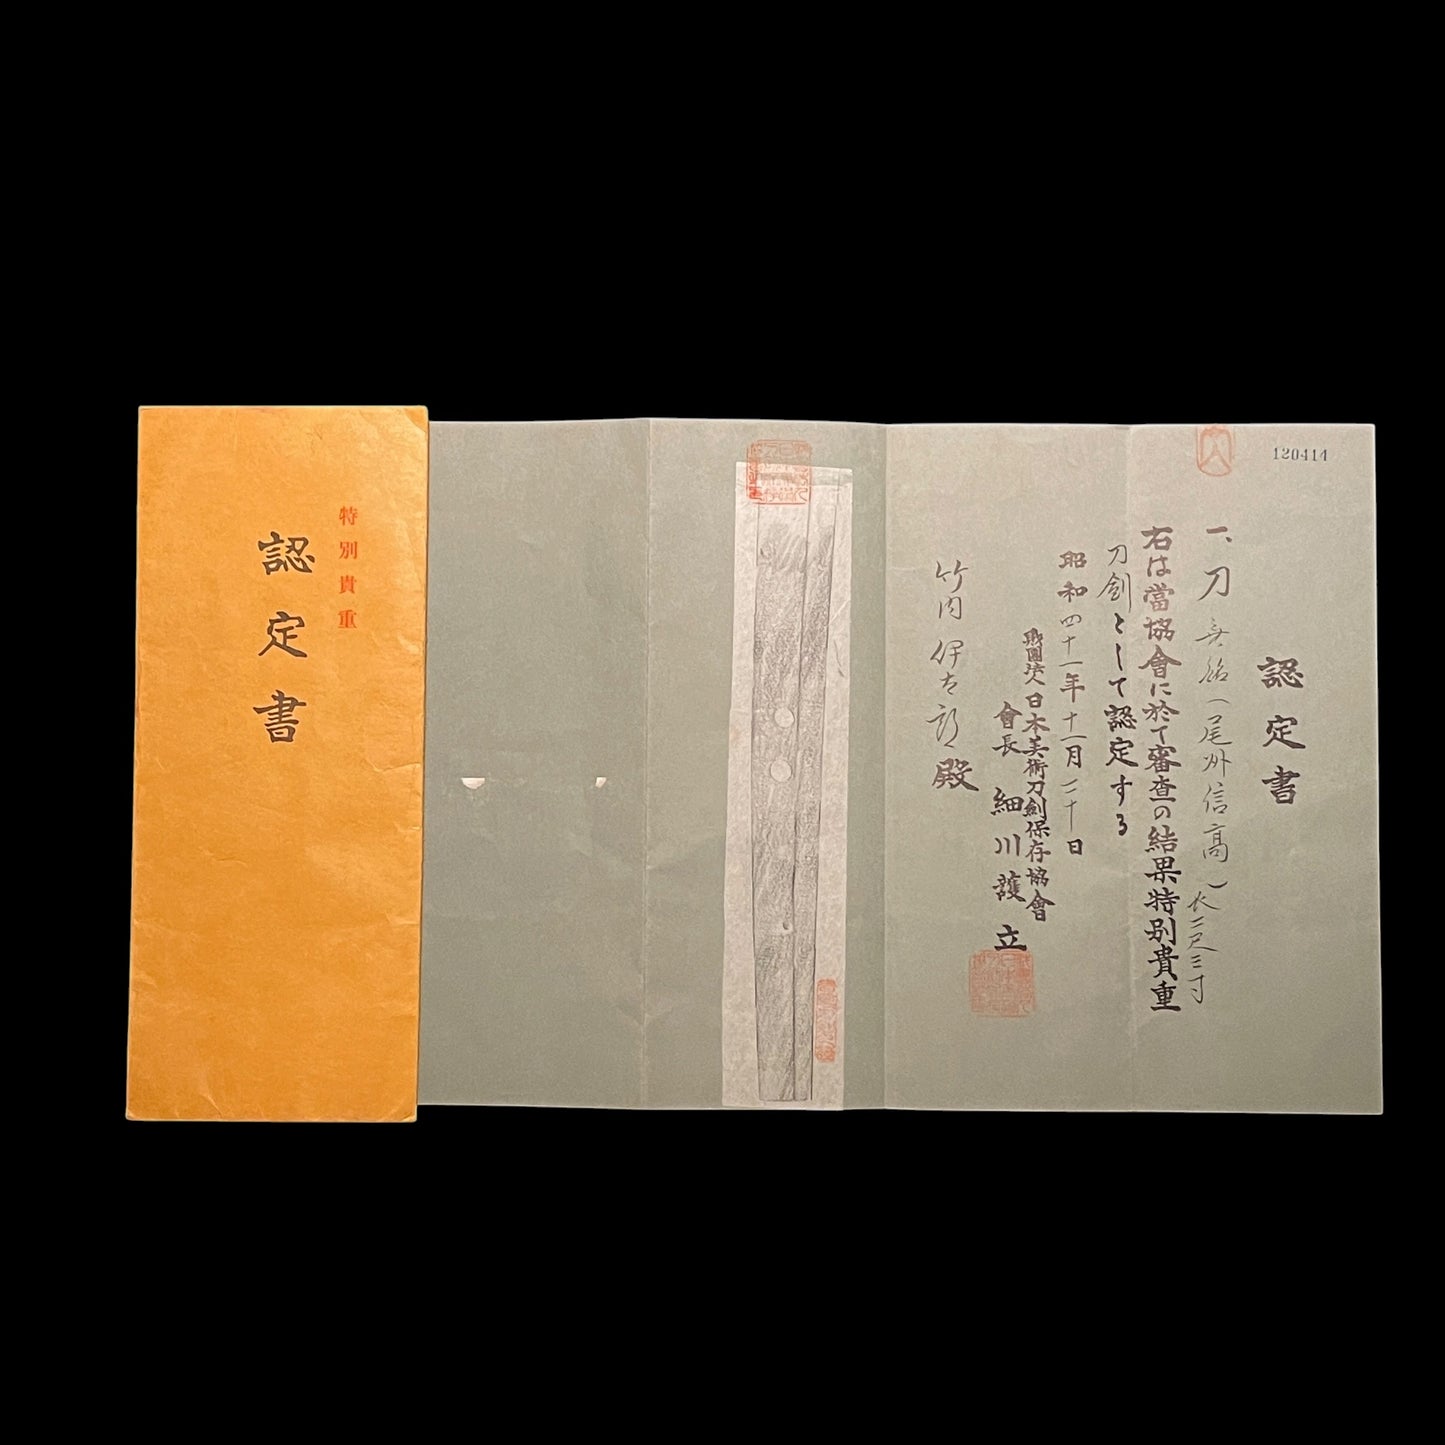 120414
認定書
一、刀 無銘(尾州信高)長二尺三寸
右は當協會に於て審査の結果特別貴重
刀劍として認定する
昭和四十一年十一月二十日
財團法人日本美術刀劍保存協會
會長 細川護立
竹内伊太郎殿
特別貴重
認定書